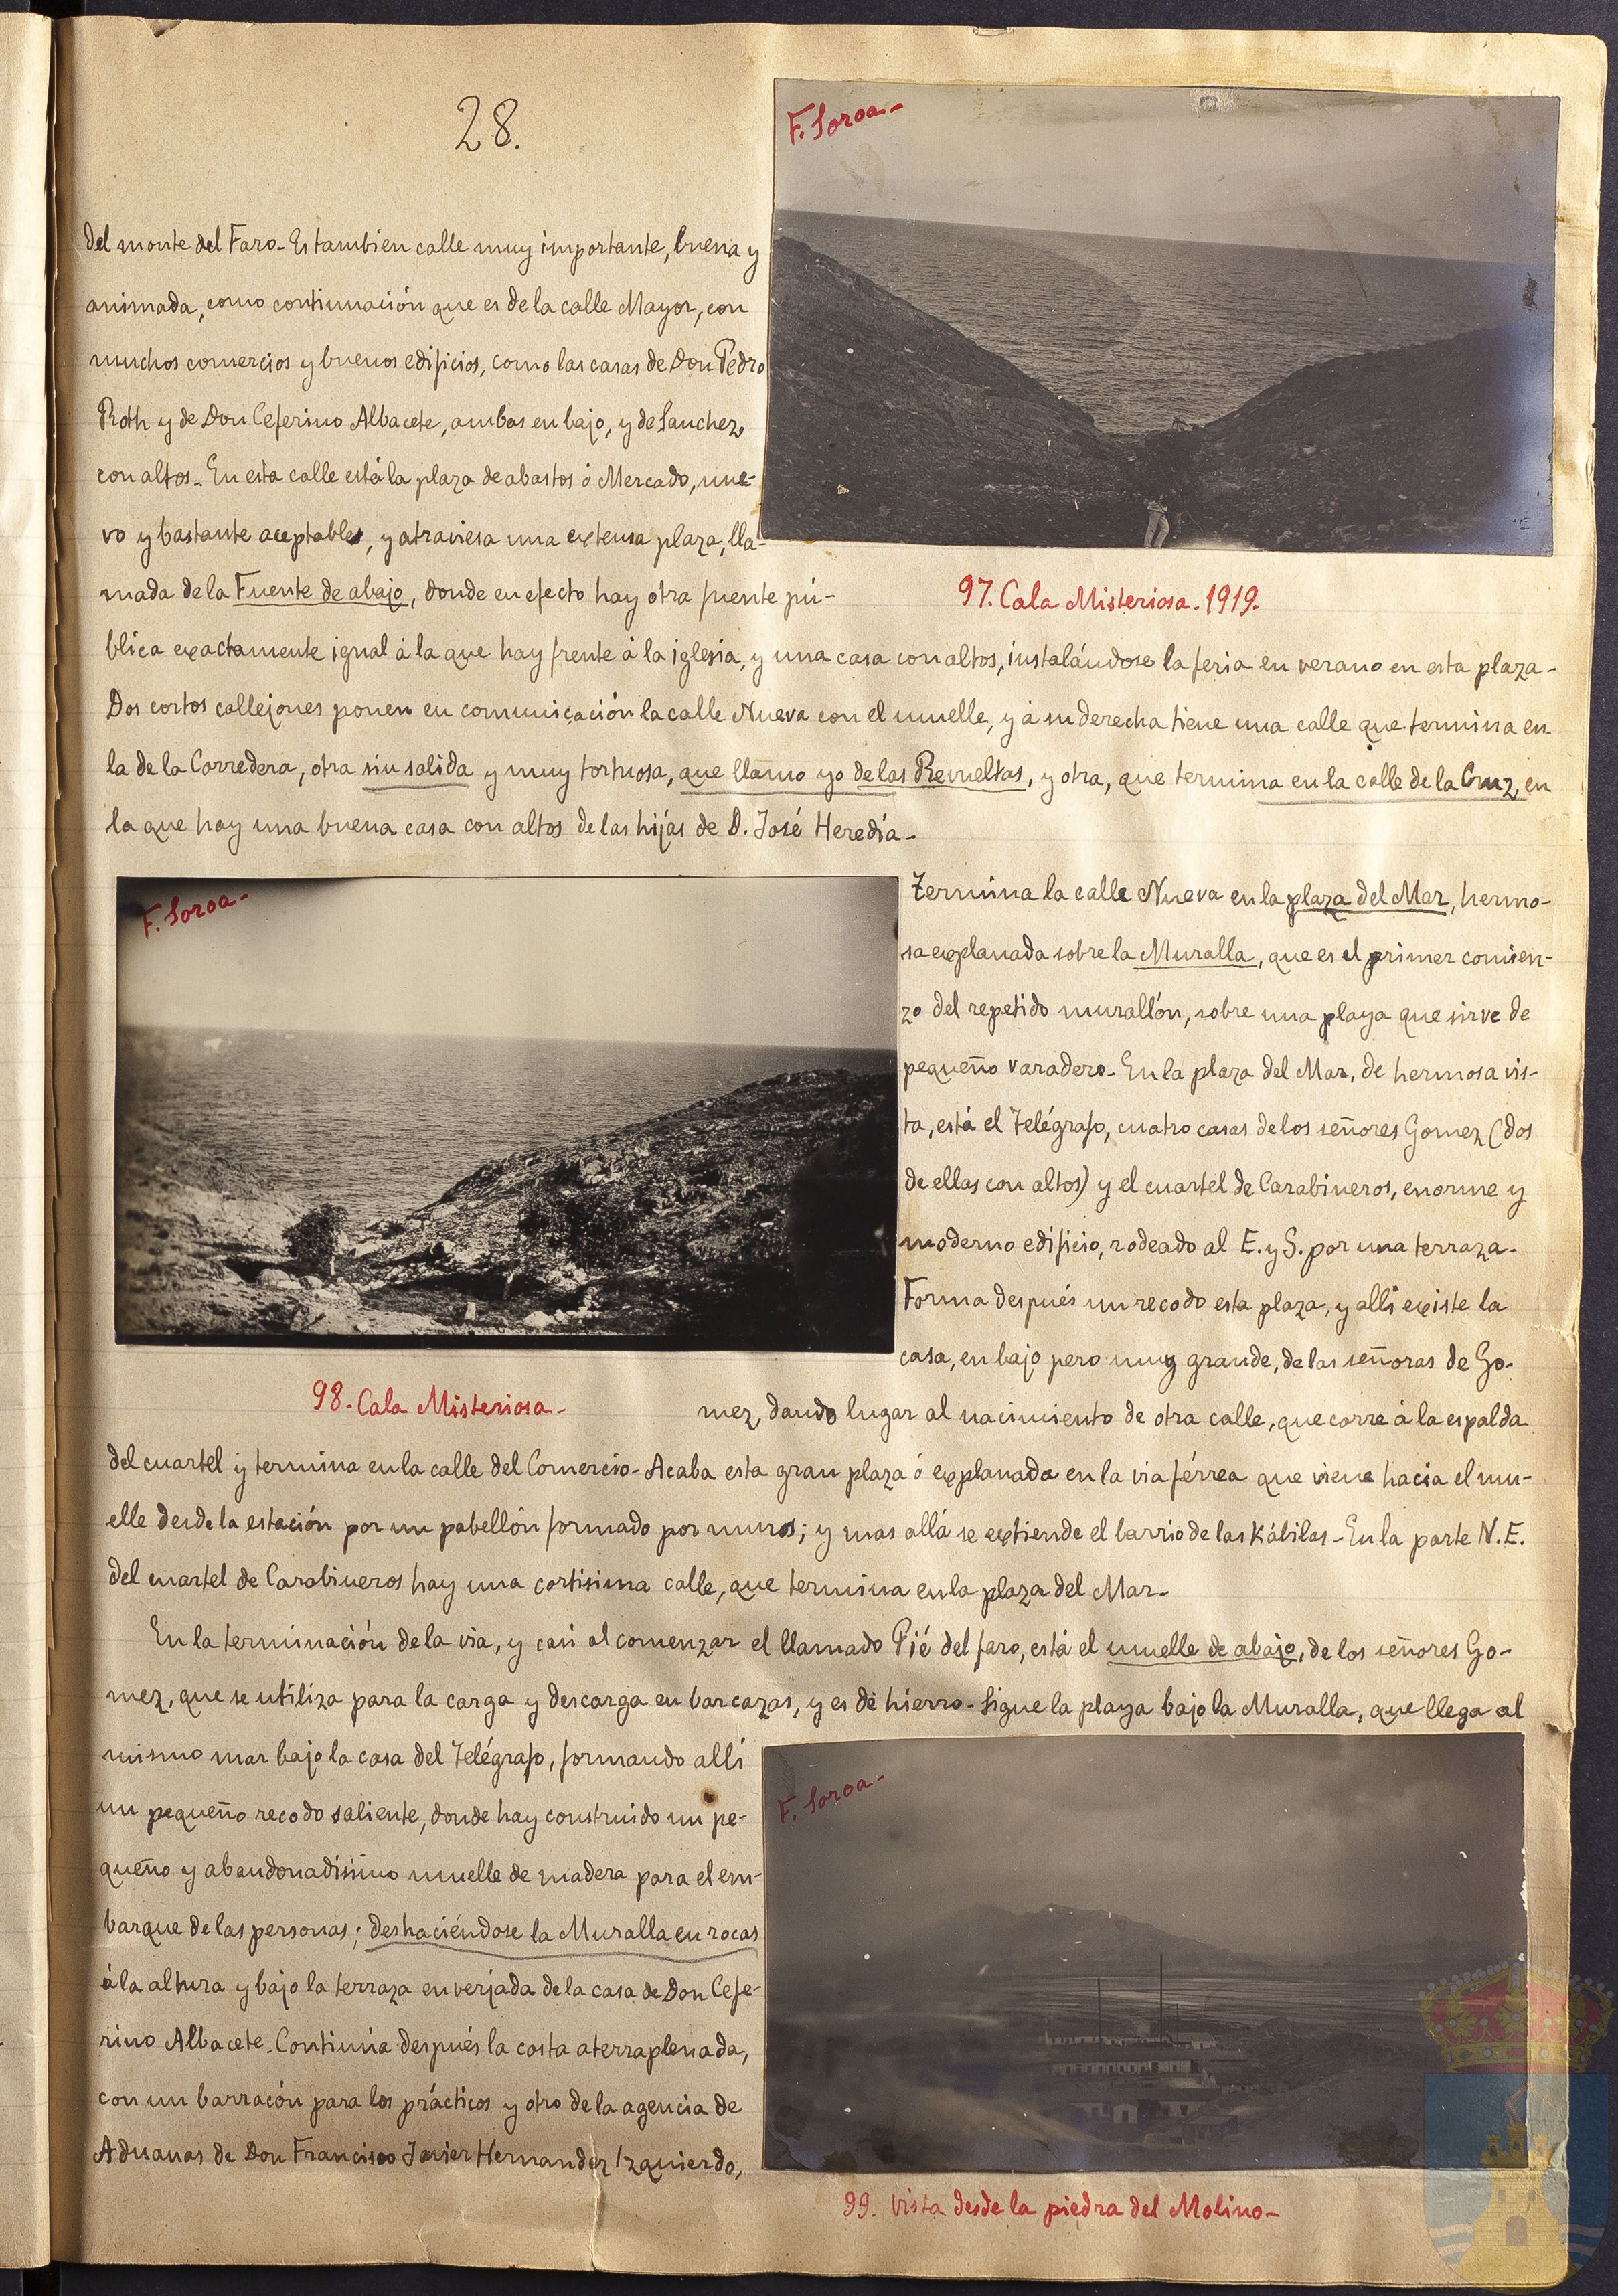 28.
F. Soroa-
del monte del Faro- Es tambien calle muy importante, buena y
animada, como continuación que es de la calle Mayor, con
muchos comercios y buenos edificios, como las casas de Don Pedro
Roth y de Don Ceferino Albacete, ambas en bajo, y de Sanchez,
con altos- En esta calle está la plaza de abastos ó Mercado, nue-
vo y bastante aceptable, y atraviesa una extensa plaza, lla-
mada de la Fuente de abajo, donde en efecto hay otra fuente pú-
97. Cala Misteriosa. 1919.
blica exactamente igual á la que hay frente á la iglesia, y una casa con altos, instalándose la feria en verano en esta plaza-
Dos cortos callejones ponen en comunicación la calle Nueva con el muelle, y á su derecha tiene una calle que termina en
la de la Corredera, otra sin salida y muy tortuosa, que llamo yo de las Revueltas, y otra, que termina en la calle de la Cruz, en
la que hay una buena casa con altos de las hijas de D. José Heredia-
F. Soroa-
Termina la calle Nueva en la plaza del Mar, hermo-
sa explanada sobre la Muralla, que es el primer comien-
zo del repetido murallón, sobre una playa que sirve de
pequeño varadero- En la plaza del Mar, de hermosa vis-
ta, está el Telégrafo, cuatro casas de los señores Gomez (dos
de ellas con altos) y el cuartel de Carabineros, enorme y
moderno edificio, rodeado al E. y S. por una terraza-
Forma después un recodo esta plaza, y allí existe la
casa, en bajo pero muy grande, de las señoras de Go-
98- Cala Misteriosa-
mez, dando lugar al nacimiento de otra calle, que corre á la espalda
del cuartel y termina en la calle del Comercio- Acaba esta gran plaza ó explanada en la via férrea que viene hacia el mu-
elle desde la estación por un pabellón formado por muros; y mas allá se extiende el barrio de las Kábilas- En la parte N.E.
del cuartel de Carabineros hay una cortisima calle, que termina en la plaza del Mar-
En la terminación de la via, y casi al comenzar el llamado Pié del faro, está el muelle de abajo, de los señores Go-
mez, que se utiliza para la carga y descarga en barcazas, y es de hierro- Sigue la playa bajo la Muralla, que llega al
mismo mar bajo la casa del Telégrafo, formando allí
un pequeño recodo saliente, donde hay construido un pe-
queño y abandonadísimo muelle de madera para el em-
barque de las personas; deshaciéndose la Muralla en rocas
á la altura y bajo la terraza enverjada de la casa de Don Cefe-
rino Albacete. Continúa después la costa aterraplenada,
con un barracón para los prácticos y otro de la agencia de
Aduanas de Don Francisco Javier Hernandez Izquierdo,
F. Soroa-
99. Vista desde la piedra del Molino-